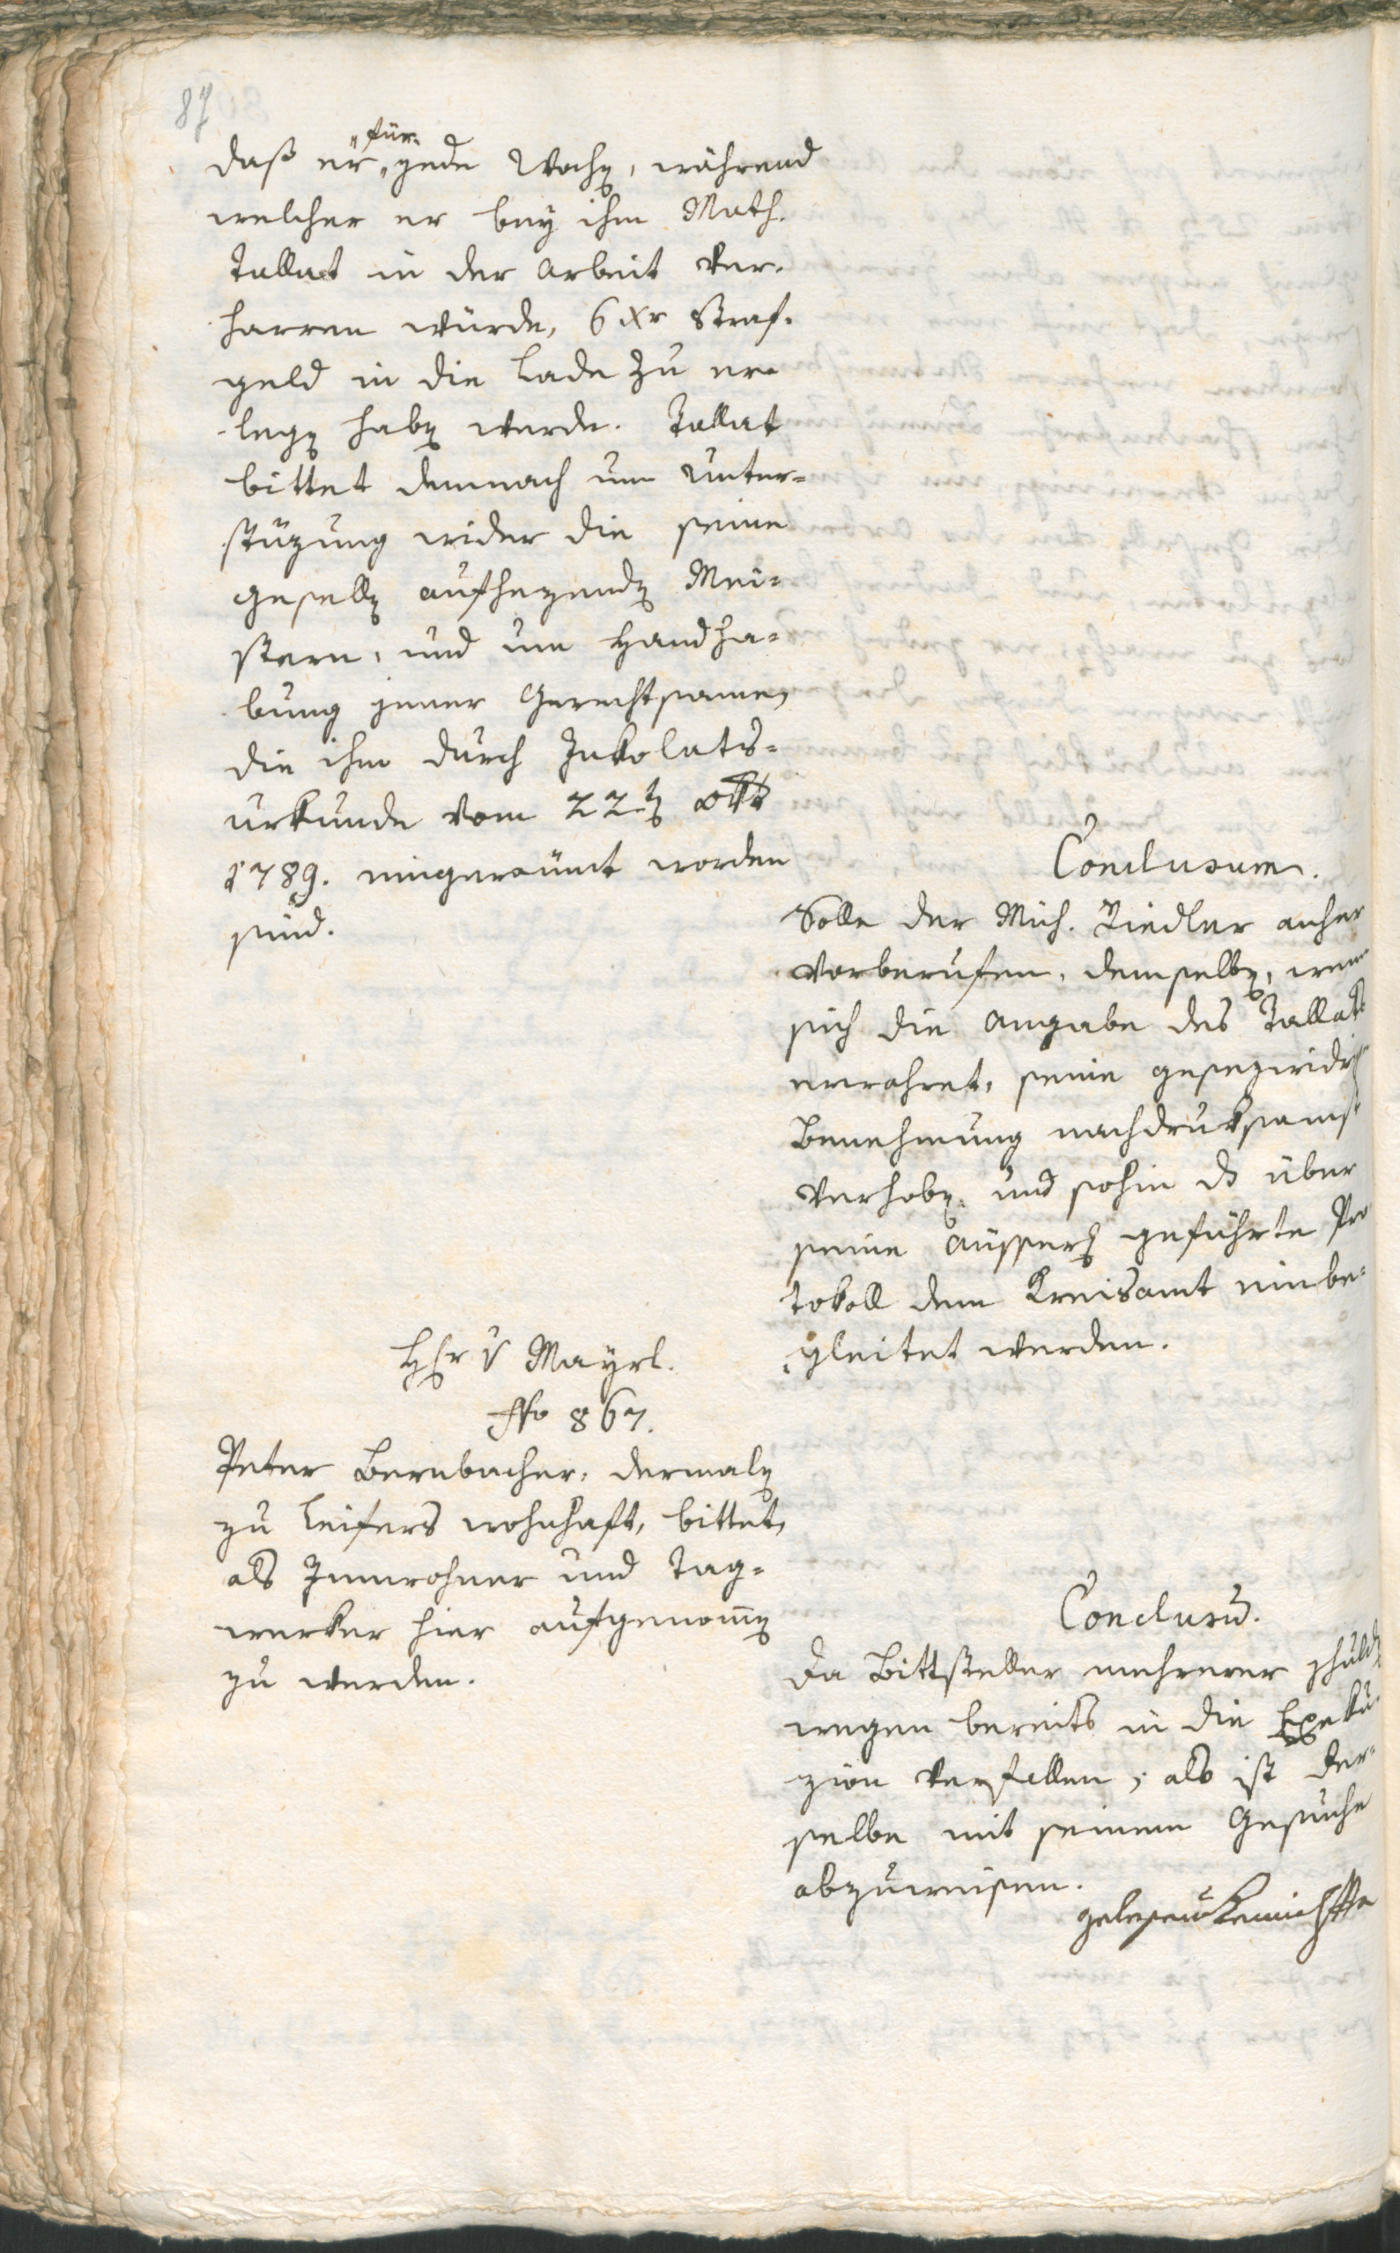 87
für
daß er jede Wochen, während
welcher er bey ihm Math.
Tallat in der Arbeit ver-
harren würde, 6 xr Straf-
geld in die Lade zu er-
legen haben werde. Tallat
bittet demnach um Unter-
stüzung wider die seine
Gesellen aufhezenden Mei-
stern, und um Handha-
bung jener Gerechtsame,
die ihm durch Inkolats-
urkunde vom 22ten
1789. eingeräumt worden
sind.
Conclusum.
Solle der Mich. Riedler anher
vorberufen, demselben, wenn
sich die Angabe des Tallats
erwahret, seine gesezwidrige
Benehmung nachdruksamst
verhoben und sohin das über
seine Äussern geführte Pro
tokoll dem Kreisamt einbe-
gleitet werden.
Hr v Mayrl.
No 867.
Peter Bernbacher, dermalen
zu Leifers wohnhaft, bittet,
als Innwohner und Tag-
werker hier aufgenommen
zu werden.
Conclusum.
Da Bittsteller mehrerer Schulden
wegen bereits in die Exeku-
zion verfallen; als ist der-
selbe mit seinem Gesuche
abzuweisen.
gelesen